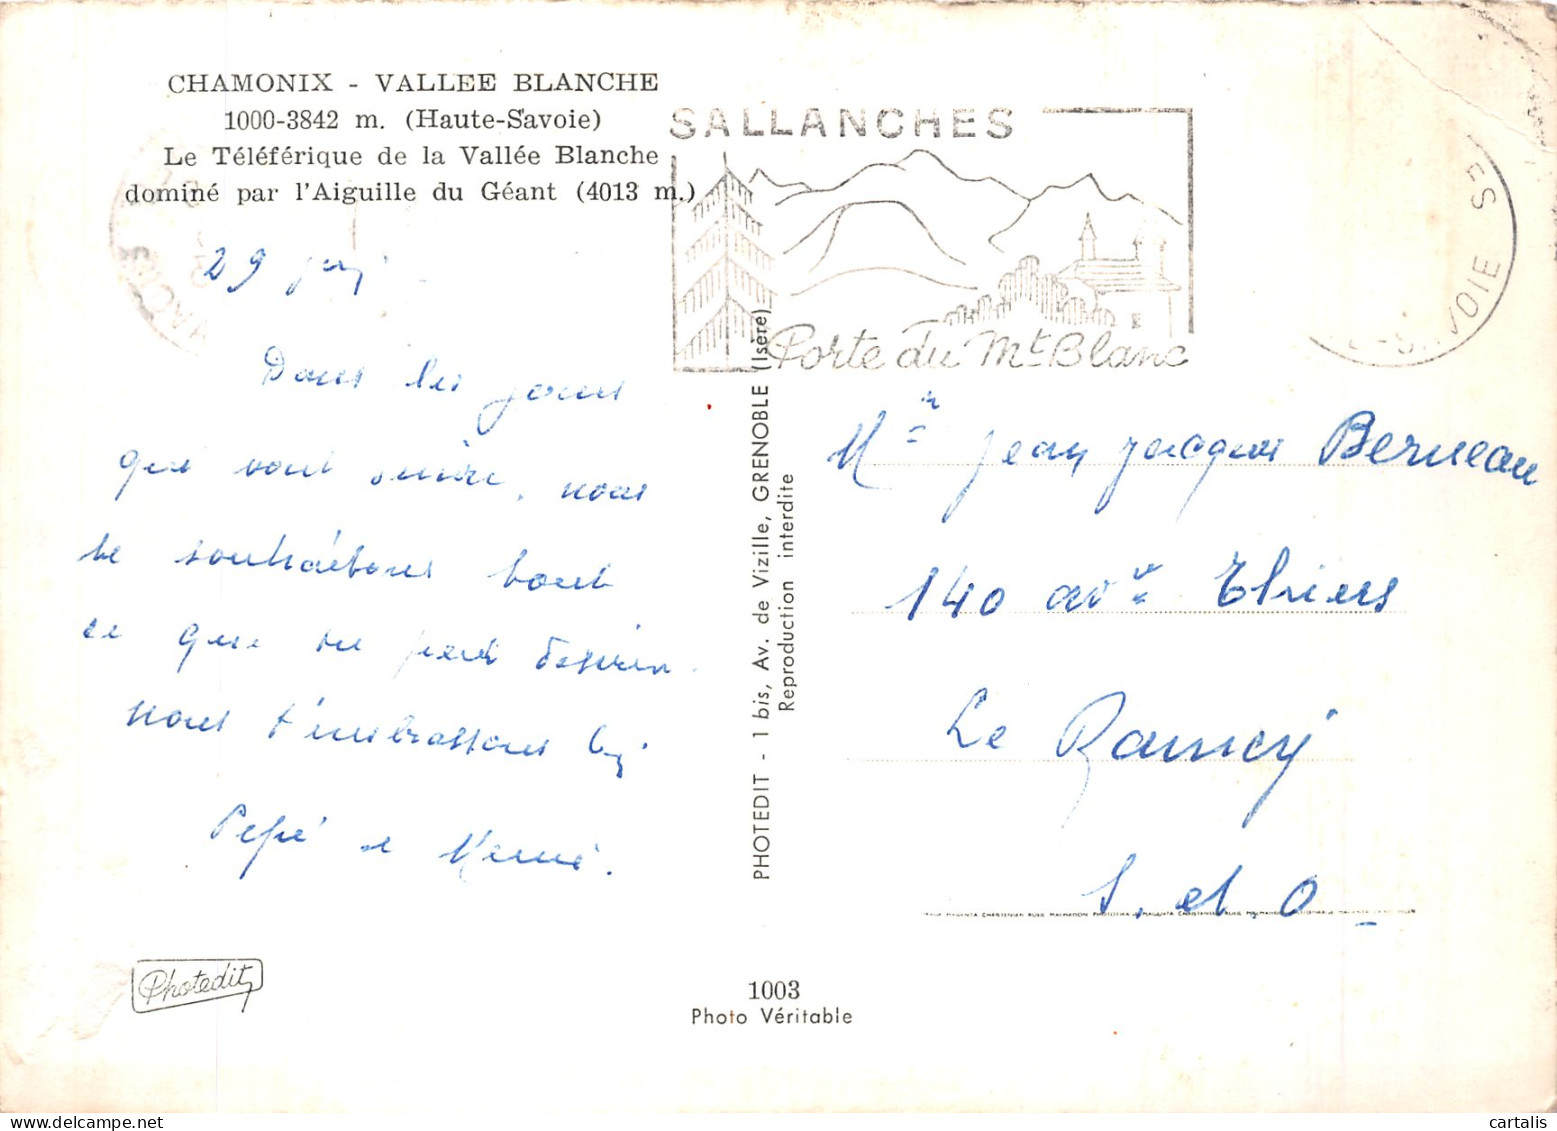 CHAMONIX - VALLEE BLANCHE
1000-3842 m. (Haute-Savoie)
Le Téléférique de la Vallée Blanche
dominé par l'Aiguille du Géant (4013 m.)
SALLANCHES
Porte du Mt Blanc
29
Dans les jours
qui vont suivre, nous
te souhaitons tout
ce que tu peux désirer
nous t'embrassons
Pépé et Mémé.
Jean Jacques Berneau
140 av. Thiers
Le Raincy
S. et O
PHOTEDIT - 1 bis, Av. de Vizille, GRENOBLE (Isère)
Reproduction interdite
Photedit
1003
Photo Véritable
cartalis